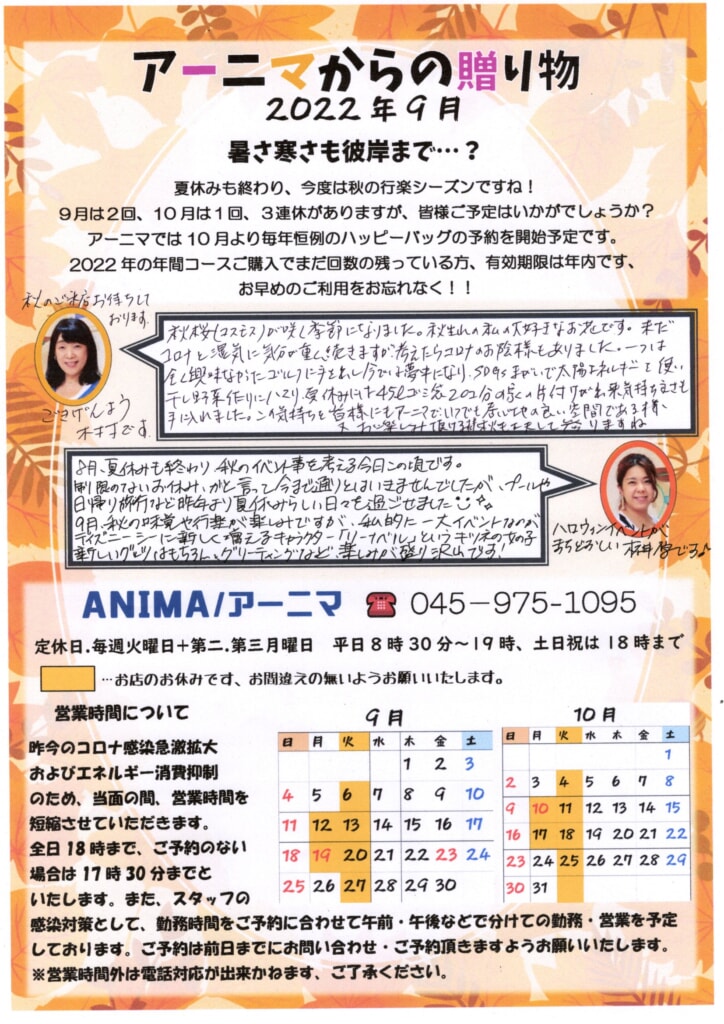 アーニマからの贈り物
2022年9月
暑さ寒さも彼岸まで…？
夏休みも終わり、今度は秋の行楽シーズンですね！
9月は2回、10月は1回、3連休がありますが、皆様ご予定はいかがでしょうか？
アーニマでは10月より毎年恒例のハッピーバッグの予約を開始予定です。
2022年の年間コースご購入でまだ回数の残っている方、有効期限は年内です、
お早めのご利用をお忘れなく！！
秋のご来店お待ちして
おります。
ごきげんよう
木村です
秋桜(コスモス)が咲く季節になりました。秋生れの私の大好きなお花です。まだ
コロナと湿気に気分が重く続きますが考えたらコロナのお陰様もありました。一つは
全く興味なかったゴルフに手を出し今では夢中になり、
干し野菜作りにハマリ、夏休みには45ℓゴミ袋20コ分の
手に入れました。この気持ちを皆様にもアーニマで
8月、夏休みも終わり、秋のイベント事を考える今日この頃です。
制限のないお休み、かと言って今まで通りとはいきませんでしたが、プールや
日帰り旅行など昨年より夏休みらしい日々を過ごせました
9月、秋の味覚や行楽が楽しみですが、私的に一大イベントなのが
ディズニーシーに新しく増えるキャラクター「リーナベル」というキツネの女の子
新しいグッズはもちろん、グリーティングなど、楽しみが盛り沢山です！
ハロウィンイベントが
まちどおしい
ANIMA/アーニマ ☎ 045－975-1095
定休日.毎週火曜日＋第二.第三月曜日 平日8時30分～19時、土日祝は18時まで
…お店のお休みです、お間違えの無いようお願いいたします。
営業時間について
昨今のコロナ感染急激拡大
およびエネルギー消費抑制
のため、当面の間、営業時間を
短縮させていただきます。
全日18時まで、ご予約のない
場合は17時30分までと
いたします。また、スタッフの
感染対策として、勤務時間をご予約に合わせて午前・午後などで分けての勤務・営業を予定
しております。ご予約は前日までにお問い合わせ・ご予約頂きますようお願いいたします。
※営業時間外は電話対応が出来かねます、ご了承ください。
9月
日 月 火 水 木 金 土
1 2 3
4 5 6 7 8 9 10
11 12 13 14 15 16 17
18 19 20 21 22 23 24
25 26 27 28 29 30
10月
日 月 火 水 木 金 土
1
2 3 4 5 6 7 8
9 10 11 12 13 14 15
16 17 18 19 20 21 22
23 24 25 26 27 28 29
30 31